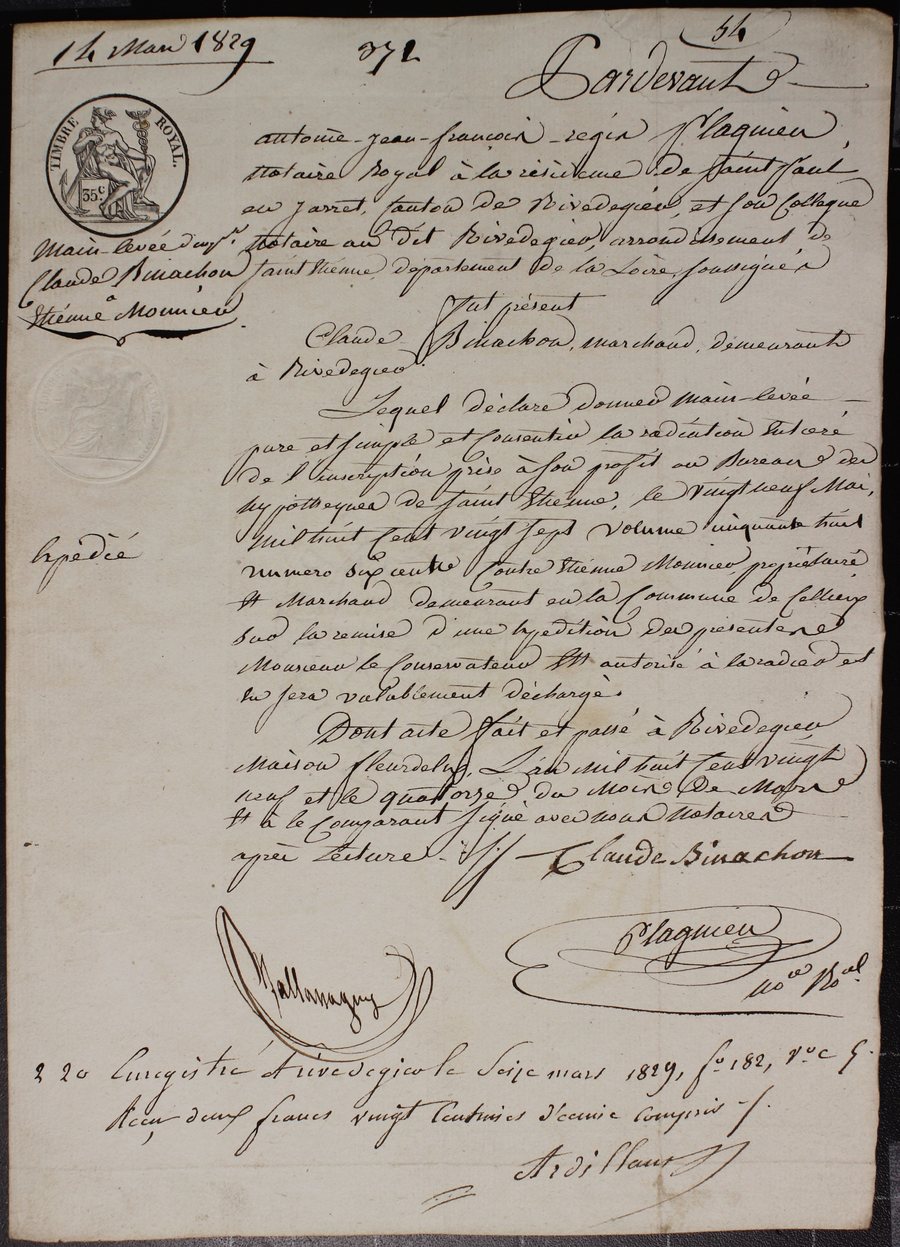 14 Mars 1829
372
54
Pardevant
TIMBRE ROYAL.
35c
antoine-jean-françois-régis Plagnieu,
Notaire Royal à la résidence de Saint Paul
en jarret, Canton de Rivedegier, et son Collègue
Notaire au dit Rivedegier, arrondissement de
Saint Etienne, département de la Loire, soussignés
Main-levée d'
Claude Binachon
à
Etienne Monnier
fut présent
Claude Binachon, marchand, demeurant
à Rivedegier.
Lequel déclare donner main-levée
pure et simple et Consentir la radiation Entière
de l'inscription prise à son profit au Bureau des
hypothèques de Saint Etienne, le vingt neuf Mai,
Mil huit Cent vingt sept volume cinquante huit
numero Contre Etienne Monnier propriétaire
Et Marchand demeurant en la Commune de Cellieu
sur la remise d'une Expédition des présentes
Monsieur le Conservateur Est autorisé à la radier et
en sera valablement déchargé.
Expédié
Dont acte fait et passé à Rivedegier
Maison fleurdelys, L'an Mil huit Cent vingt
neuf et le quatorze du Mois De Mars
Et à le Comparant signé avec nous Notaires
après Lecture.
Claude Binachon
Plagnieu
no.re R.al
2 20 Enregistré à rivedegier le Seize mars 1829, f.o 182, v.o c 5.
Reçu deux francs vingt Centimes décime compris